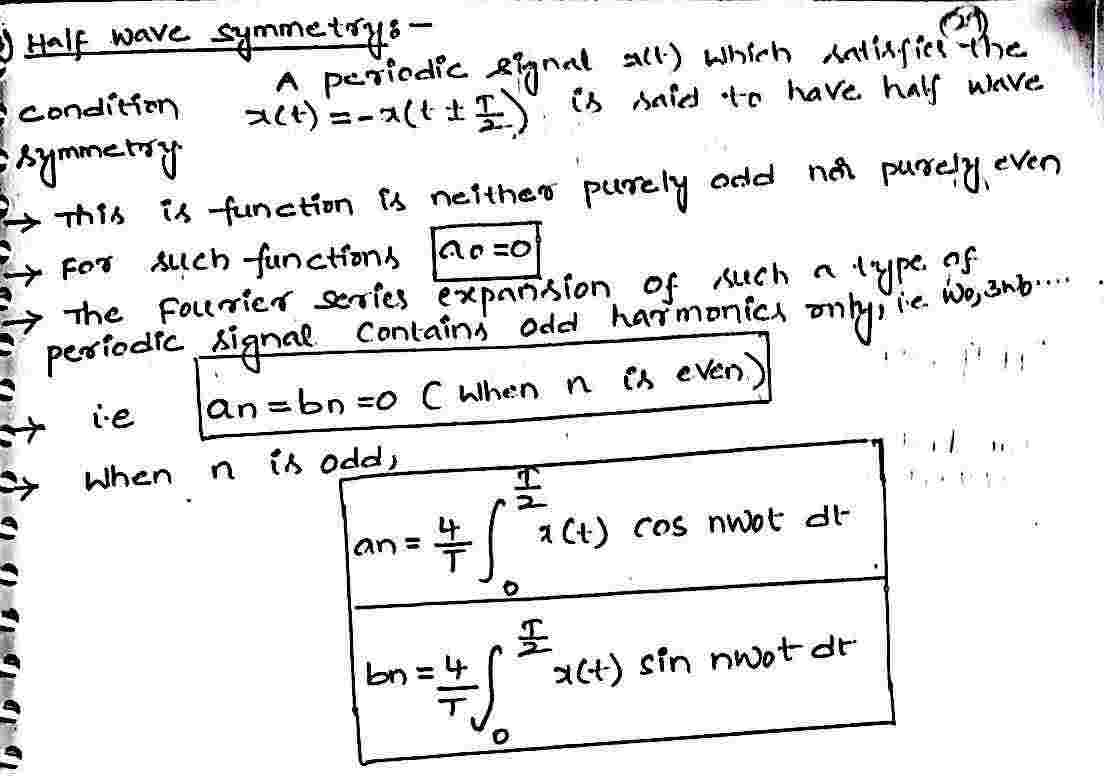 Half wave symmetry:-
(29)
A periodic signal x(t) which satisfies the
condition x(t) = -x(t ± T/2) is said to have half wave
symmetry
→ This is function is neither purely odd nor purely even
→ For such functions a0 = 0
→ The Fourier series expansion of such a type of
periodic signal contains odd harmonics only, i.e w0, 3w0....
→ i.e an = bn = 0 ( when n is even )
→ When n is odd,
an = 4/T ∫0^T/2 x(t) cos nw0t dt
bn = 4/T ∫0^T/2 x(t) sin nw0t dt